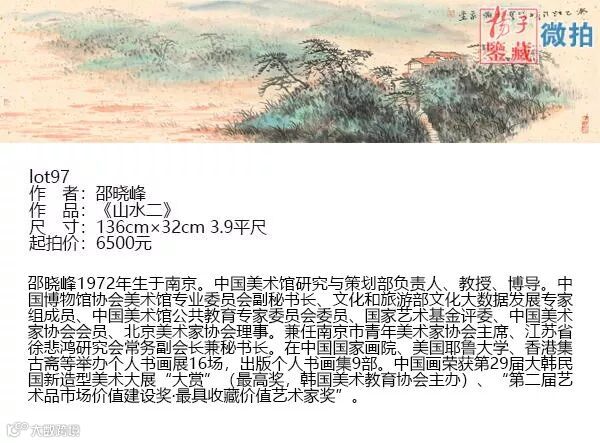 扬子
鉴藏
微拍
lot97
作　者：邵晓峰
作　品：《山水二》
尺　寸：136cm×32cm 3.9平尺
起拍价：6500元
邵晓峰1972年生于南京。中国美术馆研究与策划部负责人、教授、博导。中
国博物馆协会美术馆专业委员会副秘书长、文化和旅游部文化大数据发展专家
组成员、中国美术馆公共教育专家委员会委员、国家艺术基金评委、中国美术
家协会会员、北京美术家协会理事。兼任南京市青年美术家协会主席、江苏省
徐悲鸿研究会常务副会长兼秘书长。在中国国家画院、美国耶鲁大学、香港集
古斋等举办个人书画展16场，出版个人书画集9部。中国画荣获第29届大韩民
国新造型美术大展“大赏”（最高奖，韩国美术教育协会主办）、“第二届艺
术品市场价值建设奖·最具收藏价值艺术家奖”。
大数跨境